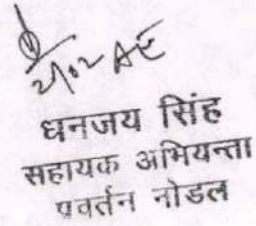 21/02 AE
धनजय सिंह
सहायक अभियन्ता
प्रवर्तन नोडल